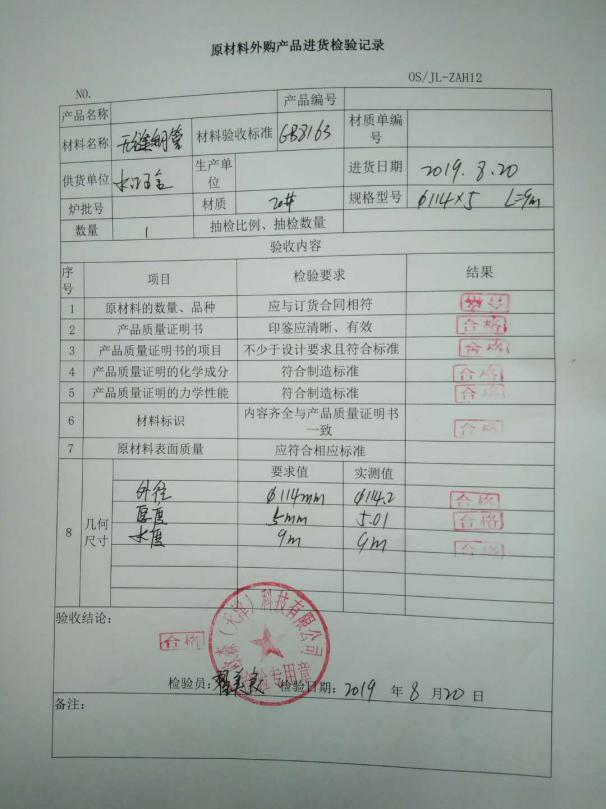 原材料外购产品进货检验记录
OS/JL-ZAH12
NO.
产品名称 产品编号
材料名称 无缝钢管 材料验收标准 GB8163 材质单编号
供货单位 生产单位 进货日期 2019.8.20
炉批号 材质 20# 规格型号 φ114×5 L=9m
数量 1 抽检比例、抽检数量
验收内容
序号 项目 检验要求 结果
1 原材料的数量、品种 应与订货合同相符
2 产品质量证明书 印鉴应清晰、有效 合格
3 产品质量证明书的项目 不少于设计要求且符合标准 合格
4 产品质量证明的化学成分 符合制造标准 合格
5 产品质量证明的力学性能 符合制造标准 合格
6 材料标识 内容齐全与产品质量证明书一致 合格
7 原材料表面质量 应符合相应标准
8 几何尺寸 要求值 实测值
外径 φ114mm φ114.2 合格
厚度 5mm 5.01 合格
长度 9m 9m 合格
验收结论:
合格
（天津）科技有限公司
检验专用章
检验员: 检验日期: 2019 年 8 月 20 日
备注: